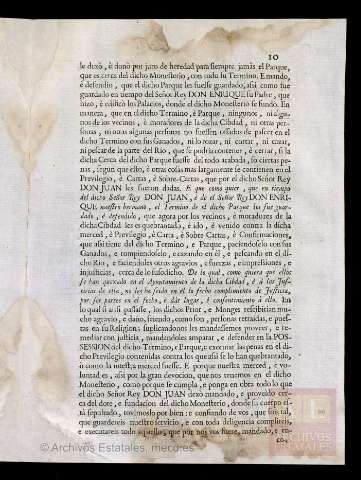 10
le dexò, è donò por juro de heredad para siempre jamàs el Parque,
que es cerca del dicho Monesterio, con todo su Termino. E mando,
è defendio, que el dicho Parque les fuesse guardado, assi como fue
guardado en tiempo del Señor Rey DON ENRIQUE su Padre, que
hizo, è edificò los Palacios, donde el dicho Monesterio se fundò. En
manera, que en el dicho Termino, è Parque, ningunos, ni algu-
nos de los vecinos, è moradores de la dicha Cibdad, ni otras per-
sonas, ni otras algunas personas no fuessen ossados de pascer en el
dicho Termino con sus Ganados, ni lo rozar, ni cortar, ni cazar,
ni pescar de la parte del Rio, que se podria contener, è cercar, si la
dicha Cerca del dicho Parque fuesse del todo acabada, so ciertas pe-
nas, segun que esto, è otras cosas mas largamente se contienen en el
Previlegio, è Cartas, è Sobre-Cartas, que por el dicho Señor Rey
DON JUAN les fueron dadas. E que como quier, que en tiempo
del dicho Señor Rey DON JUAN, è de el Señor Rey DON ENRI-
QUE nuestro hermano, el Termino de el dicho Parque les fue guar-
dado, è defendido, que agora por los vecinos, è moradores de la
dicha Cibdad les es quebrantado, è ido, è venido contra la dicha
merced, è Previlegio, è Carta, è Sobre Cartas, è Confirmaciones,
que assi tiene del dicho Termino, e Parque, paciendoselo con sus
Ganados, e rompiendoselo, e cazando en èl, e pescando en el di-
cho Rio, e faciendoles otros agravios, e fuerzas, e impressiones, e
injusticias, cerca de lo susodicho. De lo qual, como quiera que ellos
se han quexado en el Ayuntamiento de la dicha Cibdad, è à las Jus-
ticias de ella, no les ha sido en ello fecho cumplimiento de Justicia,
por ser partes en el fecho, è dàr lugar, è consentimiento à ello. En
lo qual si assi passasse, los dichos Prior, e Monges rescibirian mu-
cho agravio, e daño, seyendo, como son, personas retraidas, e pues-
tas en su Religion; suplicandonos les mandassemos proveer, e re-
mediar con justicia, mandandoles amparar, e defender en la POS-
SESSION del dicho Termino, e Parque, e executar las penas en el di-
cho Previlegio contenidas contra los que assi se lo han quebrantado,
ò como la nuestra merced fuesse. E porque nuestra merced, e vo-
luntad es, assi por la gran devocion, que nos tenemos en el dicho
Monesterio, como porque se cumpla, e ponga en obra todo lo que
el dicho Señor Rey DON JUAN dexò mandado, e proveido cer-
ca del dote, e fundacion del dicho Monesterio, donde su cuerpo es-
tà sepultado, tovimoslo por bien: e confiando de vos, que sois tal,
que guardareis nuestro servicio, e con toda diligencia complireis,
e executareis todo aquello, que por nos vos fuere, mandado, e en-
co-
© Archivos Estatales, mecd.es
ARCHIVOS
ESTATALES